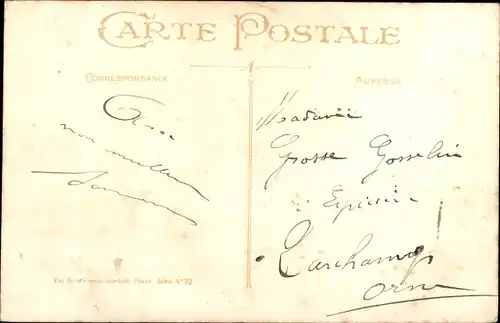 CARTE POSTALE
CORRESPONDANCE
ADRESSE
Avec
mon meilleur
Madame
Grosse Gosselin
Epicière
Larchamp
Orne
Série N° 72